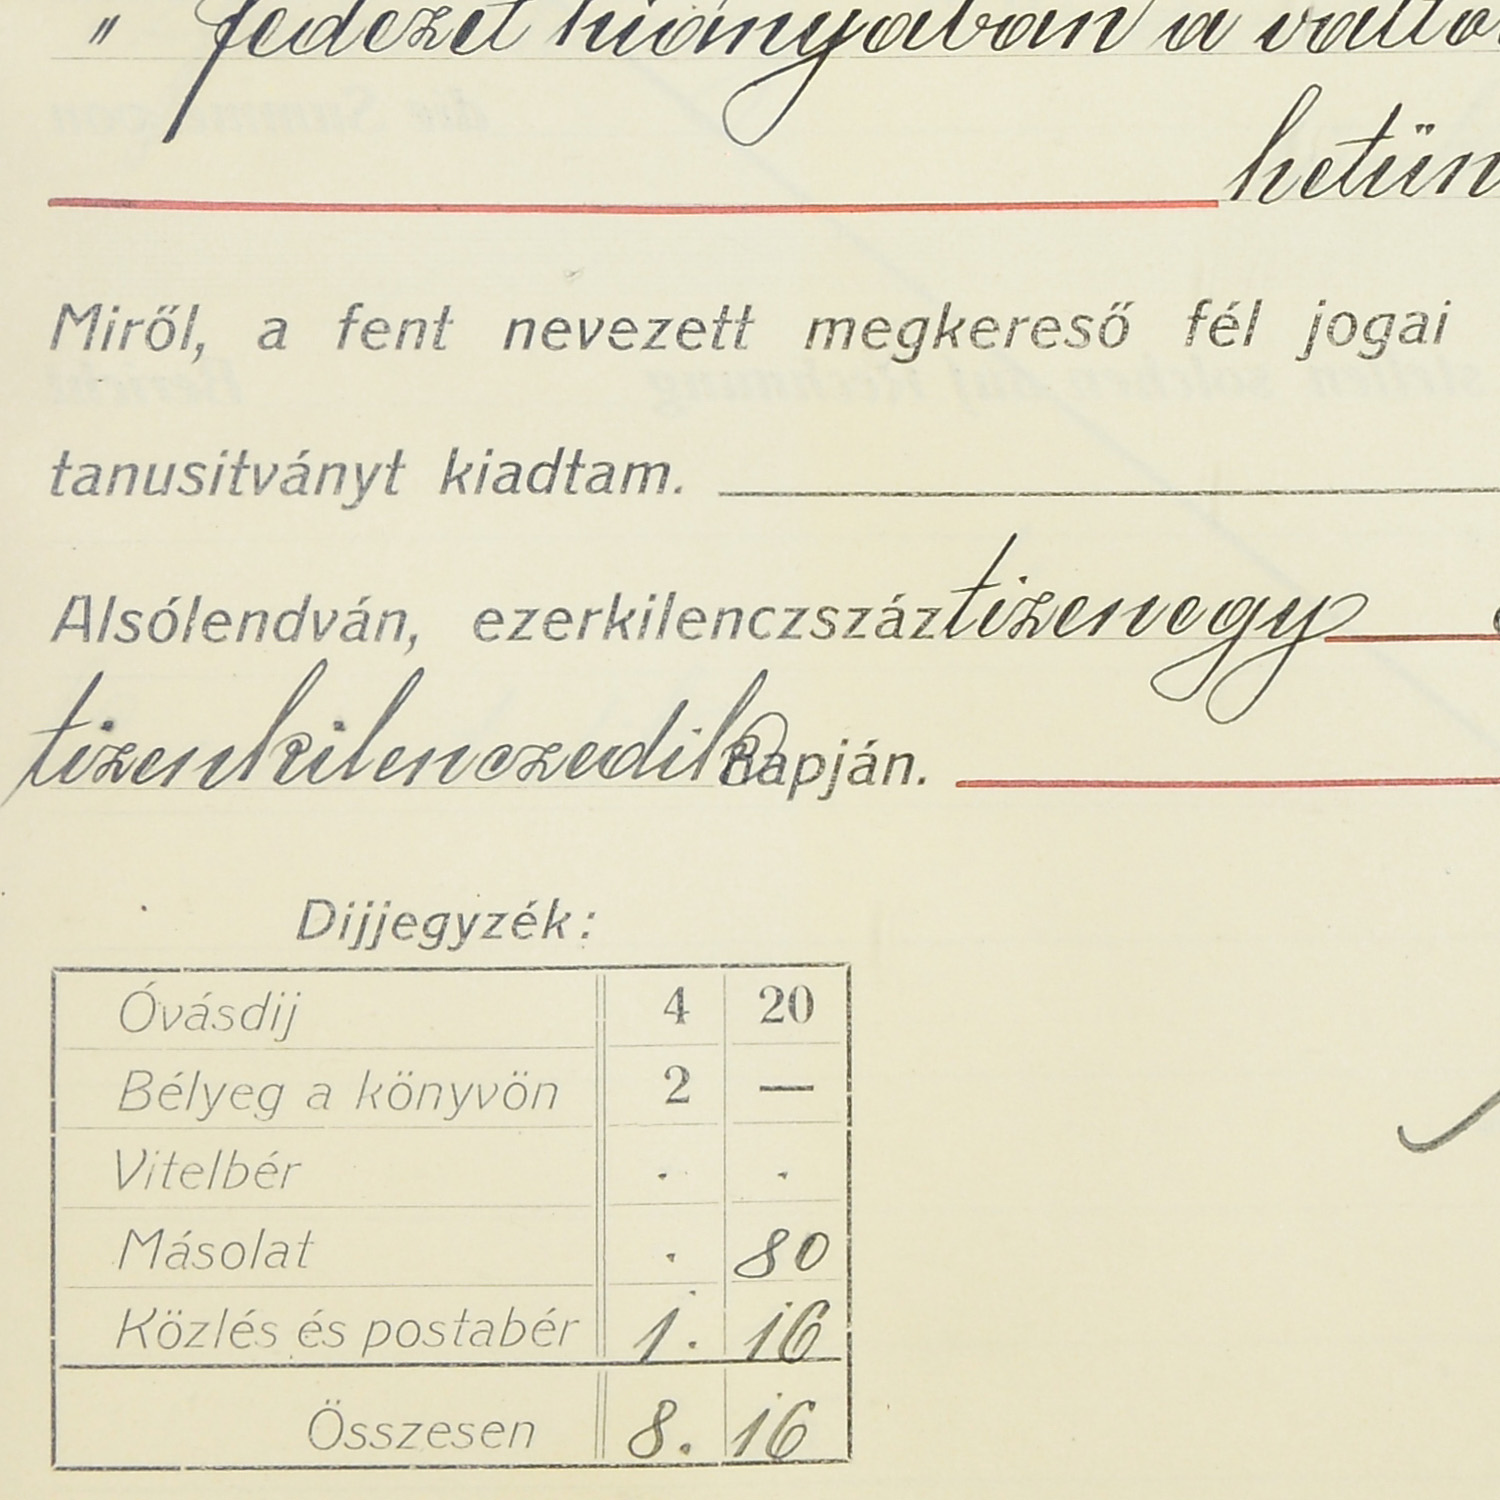 " fedezet hiányában a váltó
hetün
Miről, a fent nevezett megkereső fél jogai
tanusitványt kiadtam.
Alsólendván, ezerkilenczszáz tizenegy
tizenkilenczedik napján.
Dijjegyzék:
Óvásdij 4 20
Bélyeg a könyvön 2 —
Vitelbér . .
Másolat . 80
Közlés és postabér 1. 16
Összesen 8. 16